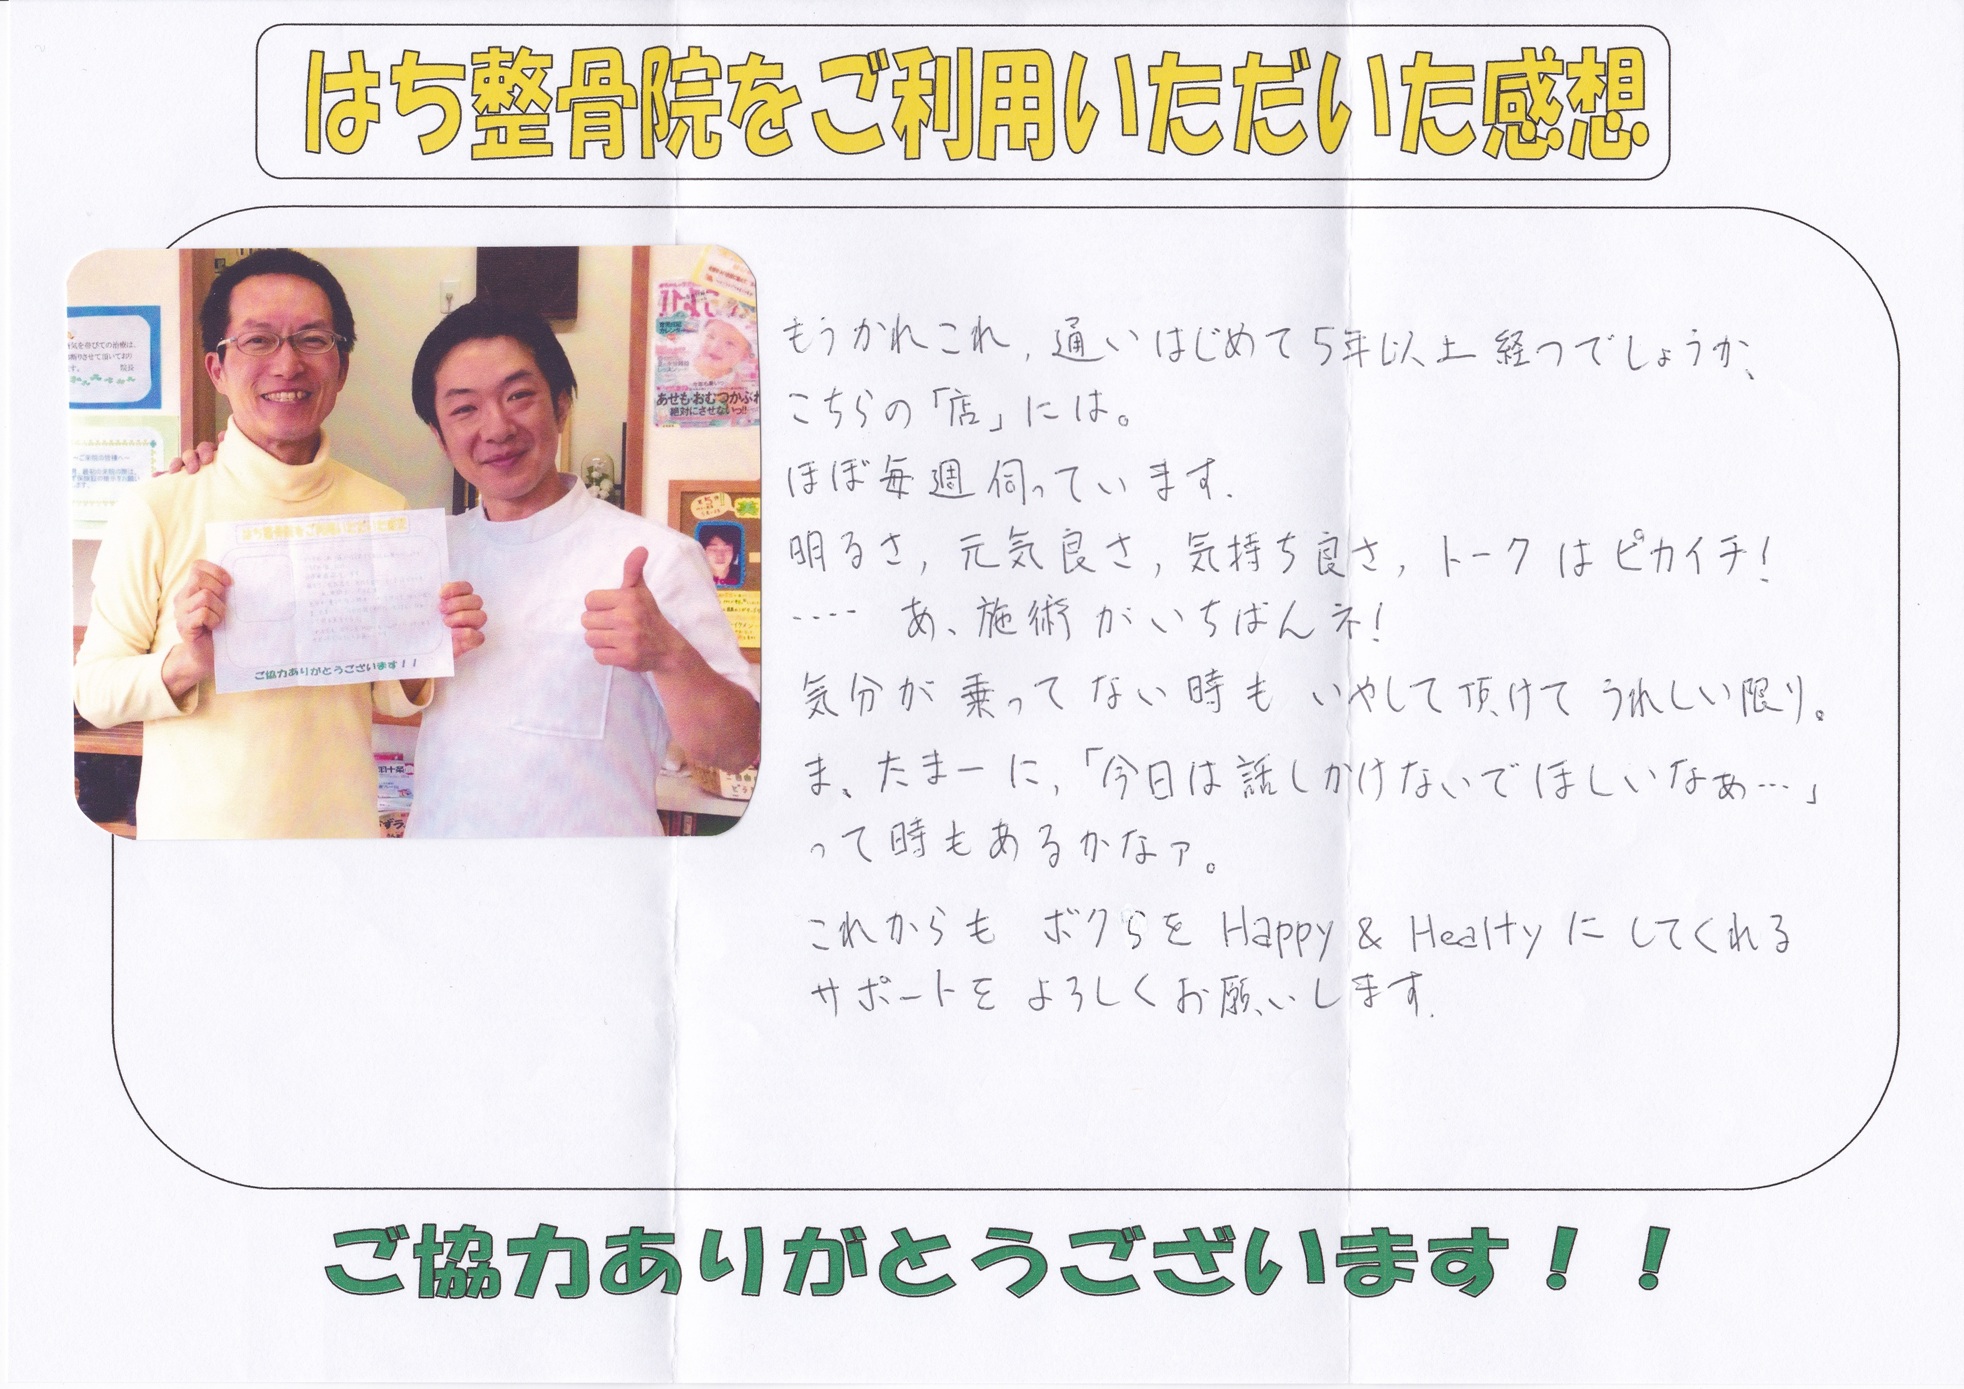 はち整骨院をご利用いただいた感想
もうかれこれ,通いはじめて5年以上経つでしょうか、
こちらの「店」には。
ほぼ毎週伺っています.
明るさ,元気良さ,気持ち良さ,トークはピカイチ!
‥‥ あ、施術がいちばんネ!
気分が乗ってない時もいやして頂けてうれしい限り。
ま、たまーに,「今日は話しかけないでほしいなぁ…」
って時もあるかなァ。
これからも ボクらを Happy & Healtyにしてくれる
サポートをよろしくお願いします.
あせも・おむつかぶれ
絶対にさせないっ!!
はち整骨院をご利用いただいた感想
ご協力ありがとうございます!!
ご協力ありがとうございます!!